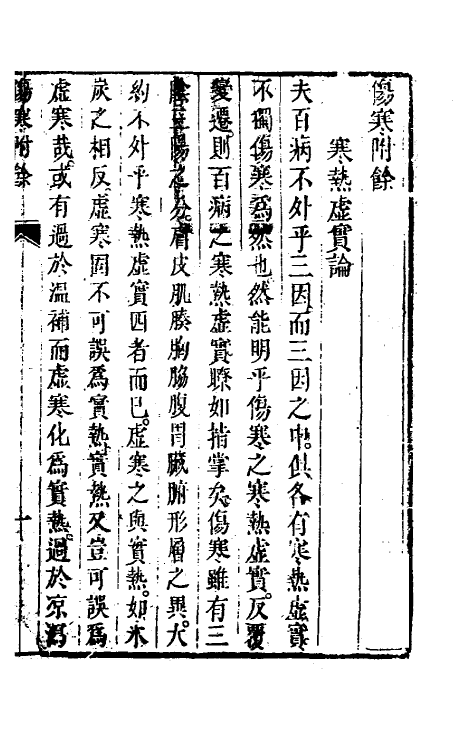 傷寒附餘
寒熱虛實論
夫百病不外乎三因而三因之中俱各有寒熱虛實
不獨傷寒爲然也然能明乎傷寒之寒熱虛實反覆
變遷則百病之寒熱虛實瞭如指掌矣傷寒雖有三
陰三陽之分膚皮肌腠胸脇腹胃臟腑形層之異大
約不外乎寒熱虛實四者而已虛寒之與實熱如冰
炭之相反虛寒固不可誤爲實熱實熱又豈可誤爲
虛寒哉或有過於溫補而虛寒化爲實熱過於凉瀉
傷寒附餘 一